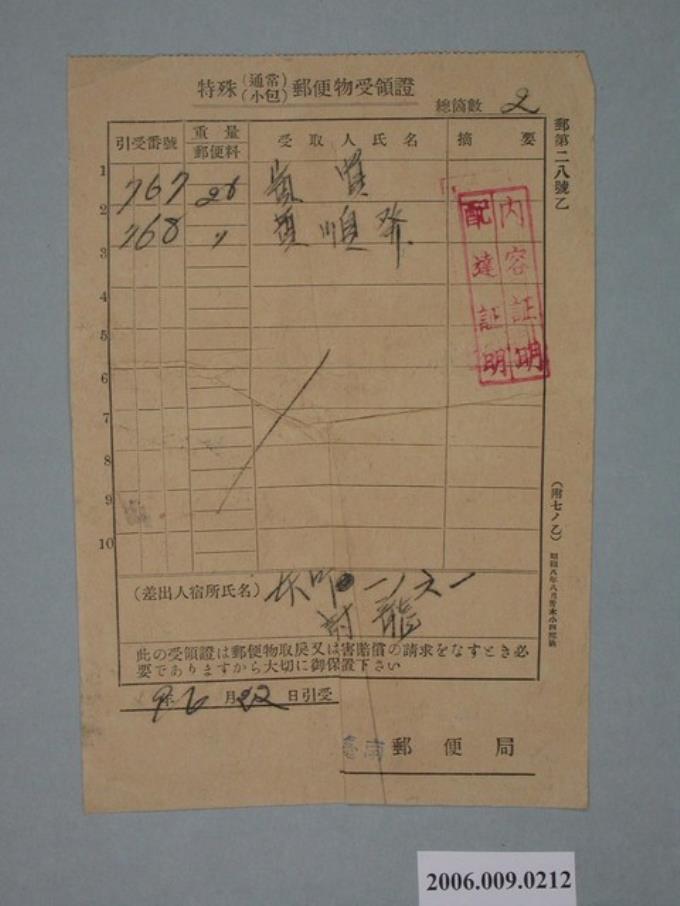 特殊(通常小包)郵便物受領證
總箇數 2
郵第二八號乙
引受番號 重量 郵便料 受取人氏名 摘要
1 767 26
2 768 〃 順
3
4
5
6
7
8
9
10
内容証明
配達証明
(附七ノ乙)
(差出人宿所氏名) 一ノ六一
龍
此の受領證は郵便物取戾又は害賠償の請求をなすとき必
要でありますから大切に御保置下さい
9年6月22日引受
臺南郵便局
2006.009.0212